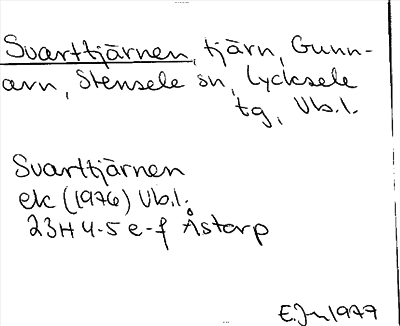 Svarttjärnen, tjärn, Gunn-
arn, Stensele sn, Lycksele
tg, Vb.l.
Svarttjärnen
ek (1976) Vb.l.
23H 4-5 e-f Åstorp
E.Jn 1977